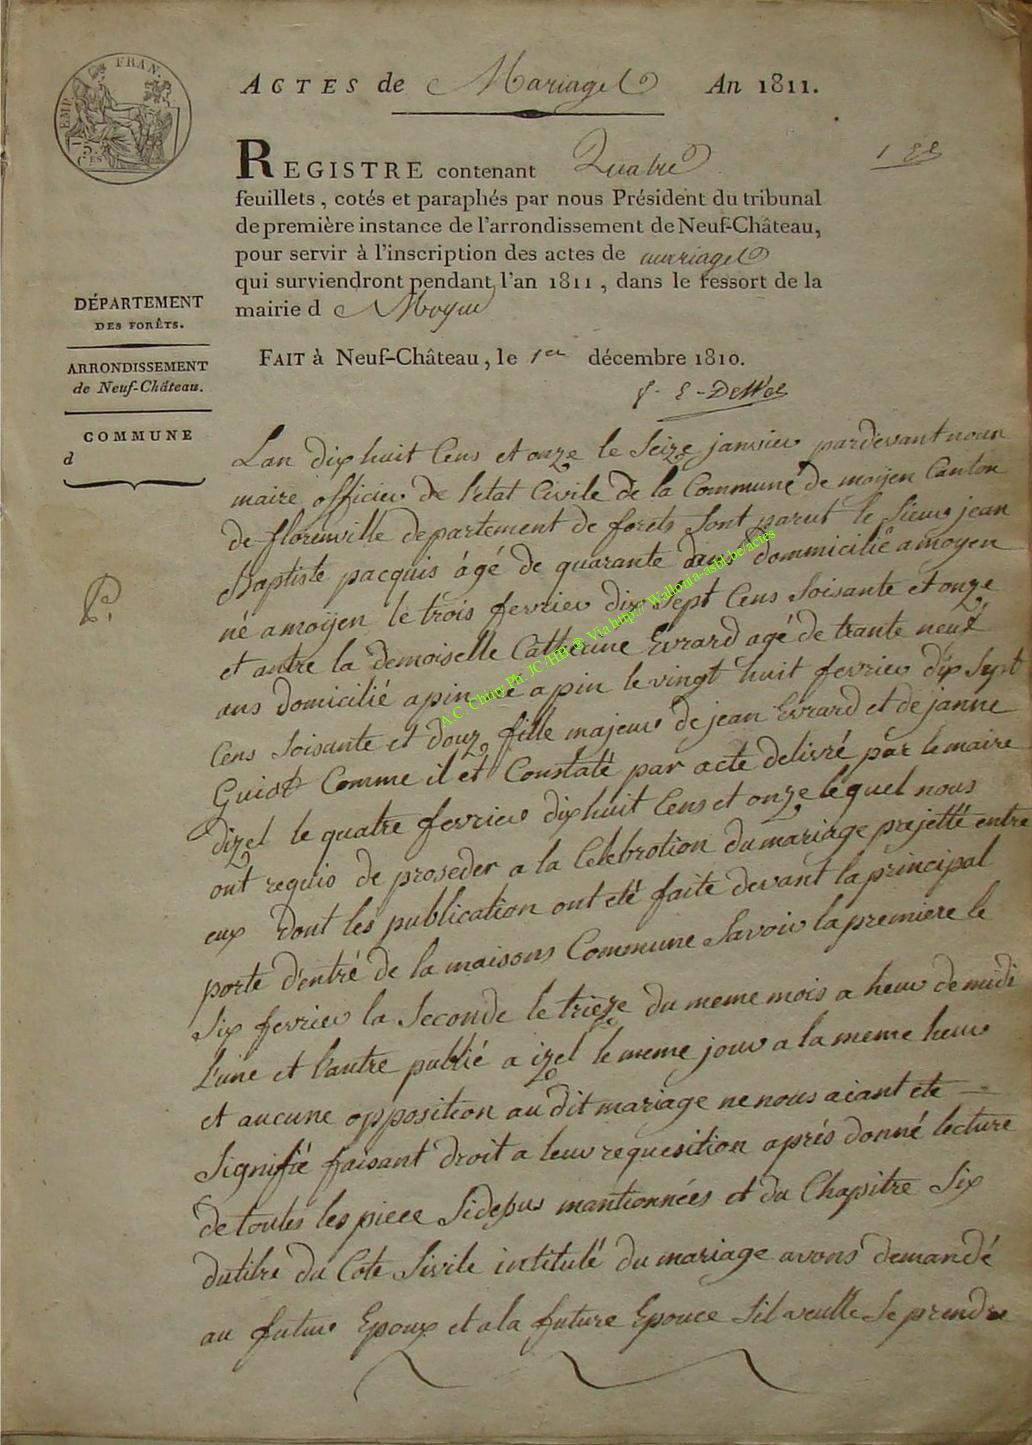 EMP. FRAN.
75. Ces
ACTES de Mariage An 1811.
REGISTRE contenant Quatre
feuillets, cotés et paraphés par nous Président du tribunal
de première instance de l'arrondissement de Neuf-Château,
pour servir à l'inscription des actes de mariage
qui surviendront pendant l'an 1811, dans le ressort de la
mairie d Moyen
FAIT à Neuf-Château, le 1er décembre 1810.
DÉPARTEMENT
DES FORÊTS.
ARRONDISSEMENT
de Neuf-Château.
COMMUNE
d
Lan dix huit Cens et onze le Seize janvier pardevant nous
maire officier de l'état Civile de la Commune de moyen Canton
de florenville departement de forets Sont parut le Sieur jean
Baptiste pacquis âgé de quarante ans dommicilié a moyen
né a moyen le trois fevrier dix Sept Cens Soisante et onze
et autre la demoiselle Catherine Evrard agé de trante neuf
ans domicilié a pin né a pin le vingt huit fevrier dix Sept
Cens Soisante et douze fille majeur de jean Evrard et de janne
Guiot Comme il et Constaté par acte delivré par le maire
dizel le quatre fevrier dix huit Cens et onze lequel nous
ont requis de proseder a la Celebration du mariage projetté entre
eux dont les publication ont eté faite devant la principal
porte d'entré de la maisons Commune Savoir la premiere le
Six fevrier la Seconde le trieze du meme mois a heur de midi
L'une et l'autre publié a izel le meme jour a la meme heur
et aucune opposition au dit mariage ne nous aiant ete
Signifié faisant droit a leur requesition aprés donné lecture
de toutes les piece Sidesus mantionnées et du Chapitre Six
du titre du Cote Sivile intitulé du mariage avons demandé
au futur Epoux et a la future Epouce Sil veulle Se prendre
A.C. Chiny Ph. JC/HB ® Via http://Wallonia-asbl.be/actes